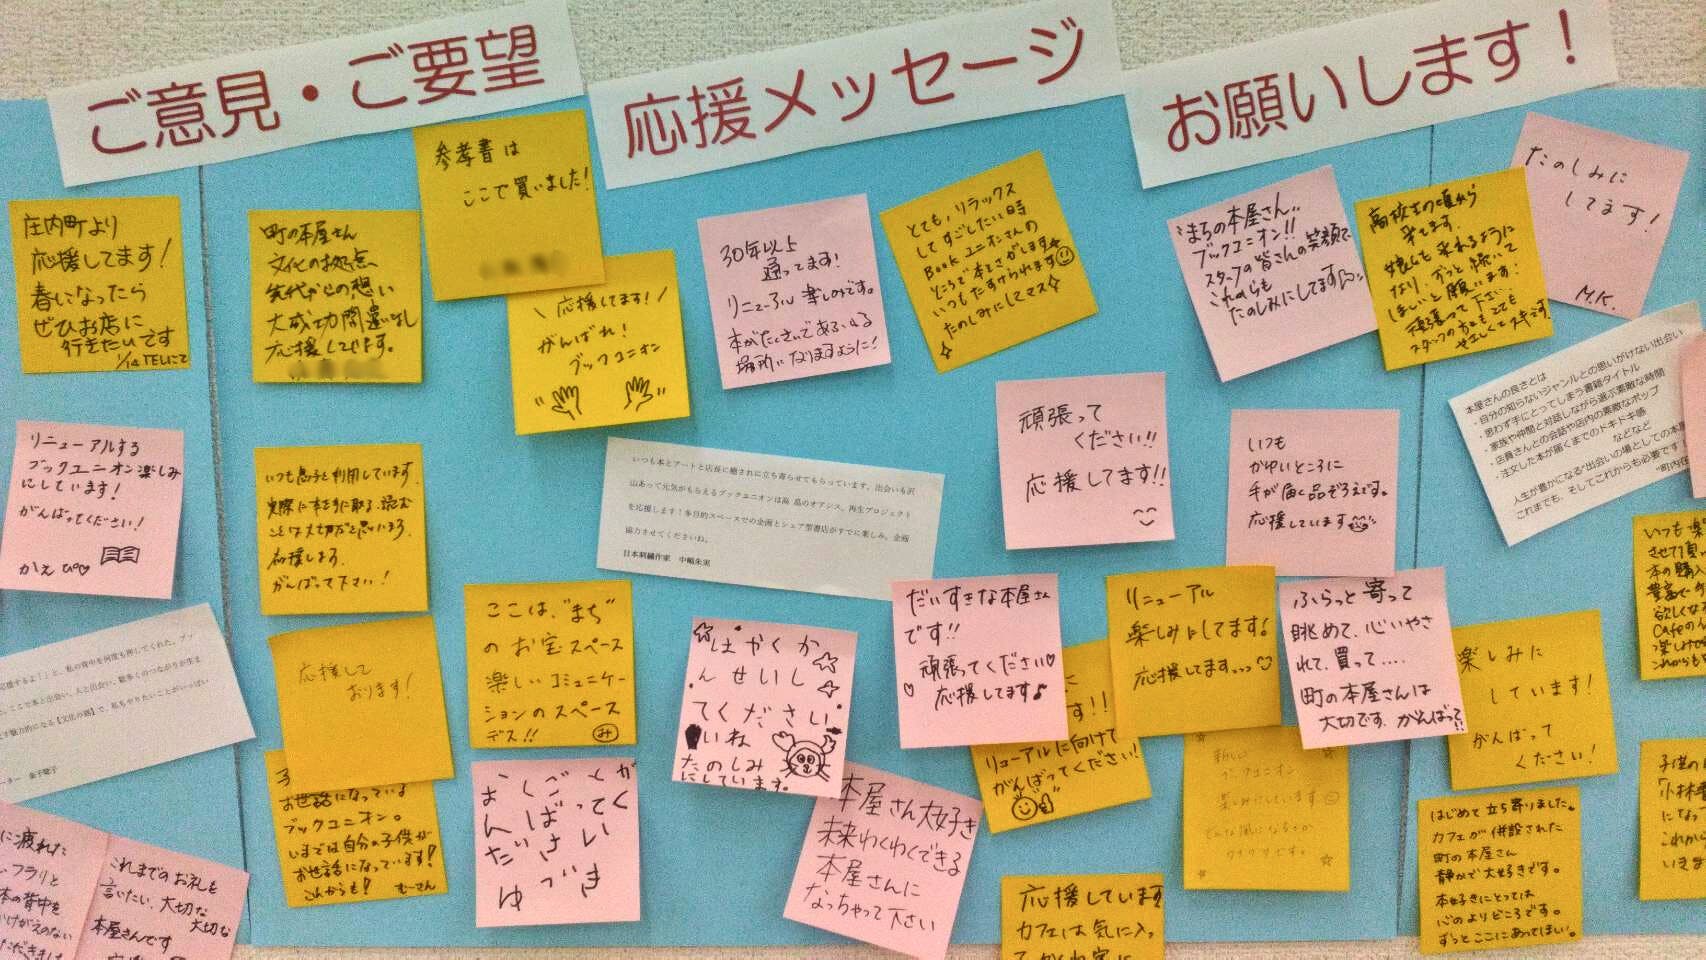 ご意見・ご要望
応援メッセージ
お願いします！
庄内町より
応援してます！
春になったら
ぜひお店に
行きたいです
1/14 TELにて
町の本屋さん
文化の拠点
先代からの想い
大成功間違いなし
応援してます。
参考書は
ここで買いました！
応援してます！
がんばれ！
ブックユニオン
30年以上
通ってます！
リニューアル楽しみです。
本がたくさんであふれる
場所になりますように！
とても、リラックス
してすごしたい時
Book ユニオンさんの
ところで本をさがします
いつもたすけられます
たのしみにしてマス☆
まちの本屋さん、
ブックユニオン!!
スタッフの皆さんの笑顔で、
これからも
たのしみにしてます
高校生の頃から
来てます。
娘らも来れるように
なり、ずっと続いて
ほしいと願います！
頑張って下さい。
スタッフの方もとても
やさしくてスキです。
たのしみに
してます！
M.K.
リニューアルする
ブックユニオン楽しみ
にしています！
がんばってください！
かえぴ♡
いつも息子と利用しています。
実際に本を手に取る、読む
ことは大切だと思います。
応援します。
がんばって下さい！
いつも本とアートと店長に癒されに立ち寄らせてもらっています。出会いも沢
山あって元気がもらえるブックユニオンは高畠のオアシス。再生プロジェクト
を応援します！多目的スペースでの企画とシェア型書店がすでに楽しみ。企画
協力させてくださいね。
日本刺繍作家　中嶋朱里
頑張って
ください!!
応援してます!!
いつも
かゆいところに
手が届く品ぞろえです。
応援しています
本屋さんの良さとは
・自分の知らないジャンルとの思いがけない出会い
・思わず手にとってしまう書籍タイトル
・家族や仲間と対話しながら選ぶ素敵な時間
・店員さんとの会話や店内の素敵なポップ
・注文した本が届くまでのドキドキ感
などなど
人生が豊かになる"出会いの場としての本屋
これまでも、そしてこれからも必要です
町内在
応援しております！
ここは、"まち"
のお宝スペース
楽しいコミュニケー
ションのスペース
デス!! み
はやくか
んせいし
てください
いね
たのしみ
にしています。
だいすきな本屋さん
です!!
頑張ってください♡
♡応援してます♪
リニューアル
楽しみにしてます！
応援してます
ふらっと寄って
眺めて、心いやさ
れて、買って....
町の本屋さんは
大切です。がんばって!!
楽しみに
しています！
がんばって
ください！
いつも楽
させて頂い
本の購入
欲しくな
Cafeの
楽しみで
これからも
応援するよ！」と、私の背中を何度も押してくれた、ブッ
。ここで本と出会い、人と出会い、数多くのつながりが生ま
す魅力的になる【文化の砦】で、私もやりたいことがいっぱい
ーター　金子聡子
お世話になっていま
ブックユニオン。
いまでは自分の子供が
お世話になっています！
これからも！　むーさん
おんだゆ
くばさ
ごっい
がてき
リニューアルに向けて
がんばってください！
本屋さん大好き
未来わくわくできる
本屋さんに
なっちゃって下さい
新しい
ブックユニオン
楽しみにしています☺
どんな風になるのか
ワクワクです。
はじめて立ち寄りました。
カフェが併設された
町の本屋さん
静かで大好きです。
本好きにとっては
心のよりどころです。
ずっとここにあってほしい。
子供の
「小林
にな
これから
いきま
に疲れた
、フラリと
本の背中を
かけがえのない
ただきまし
これまでのお礼を
言いたい、大切な
大切な
本屋さんです
応援しています
カフェは気に入っ